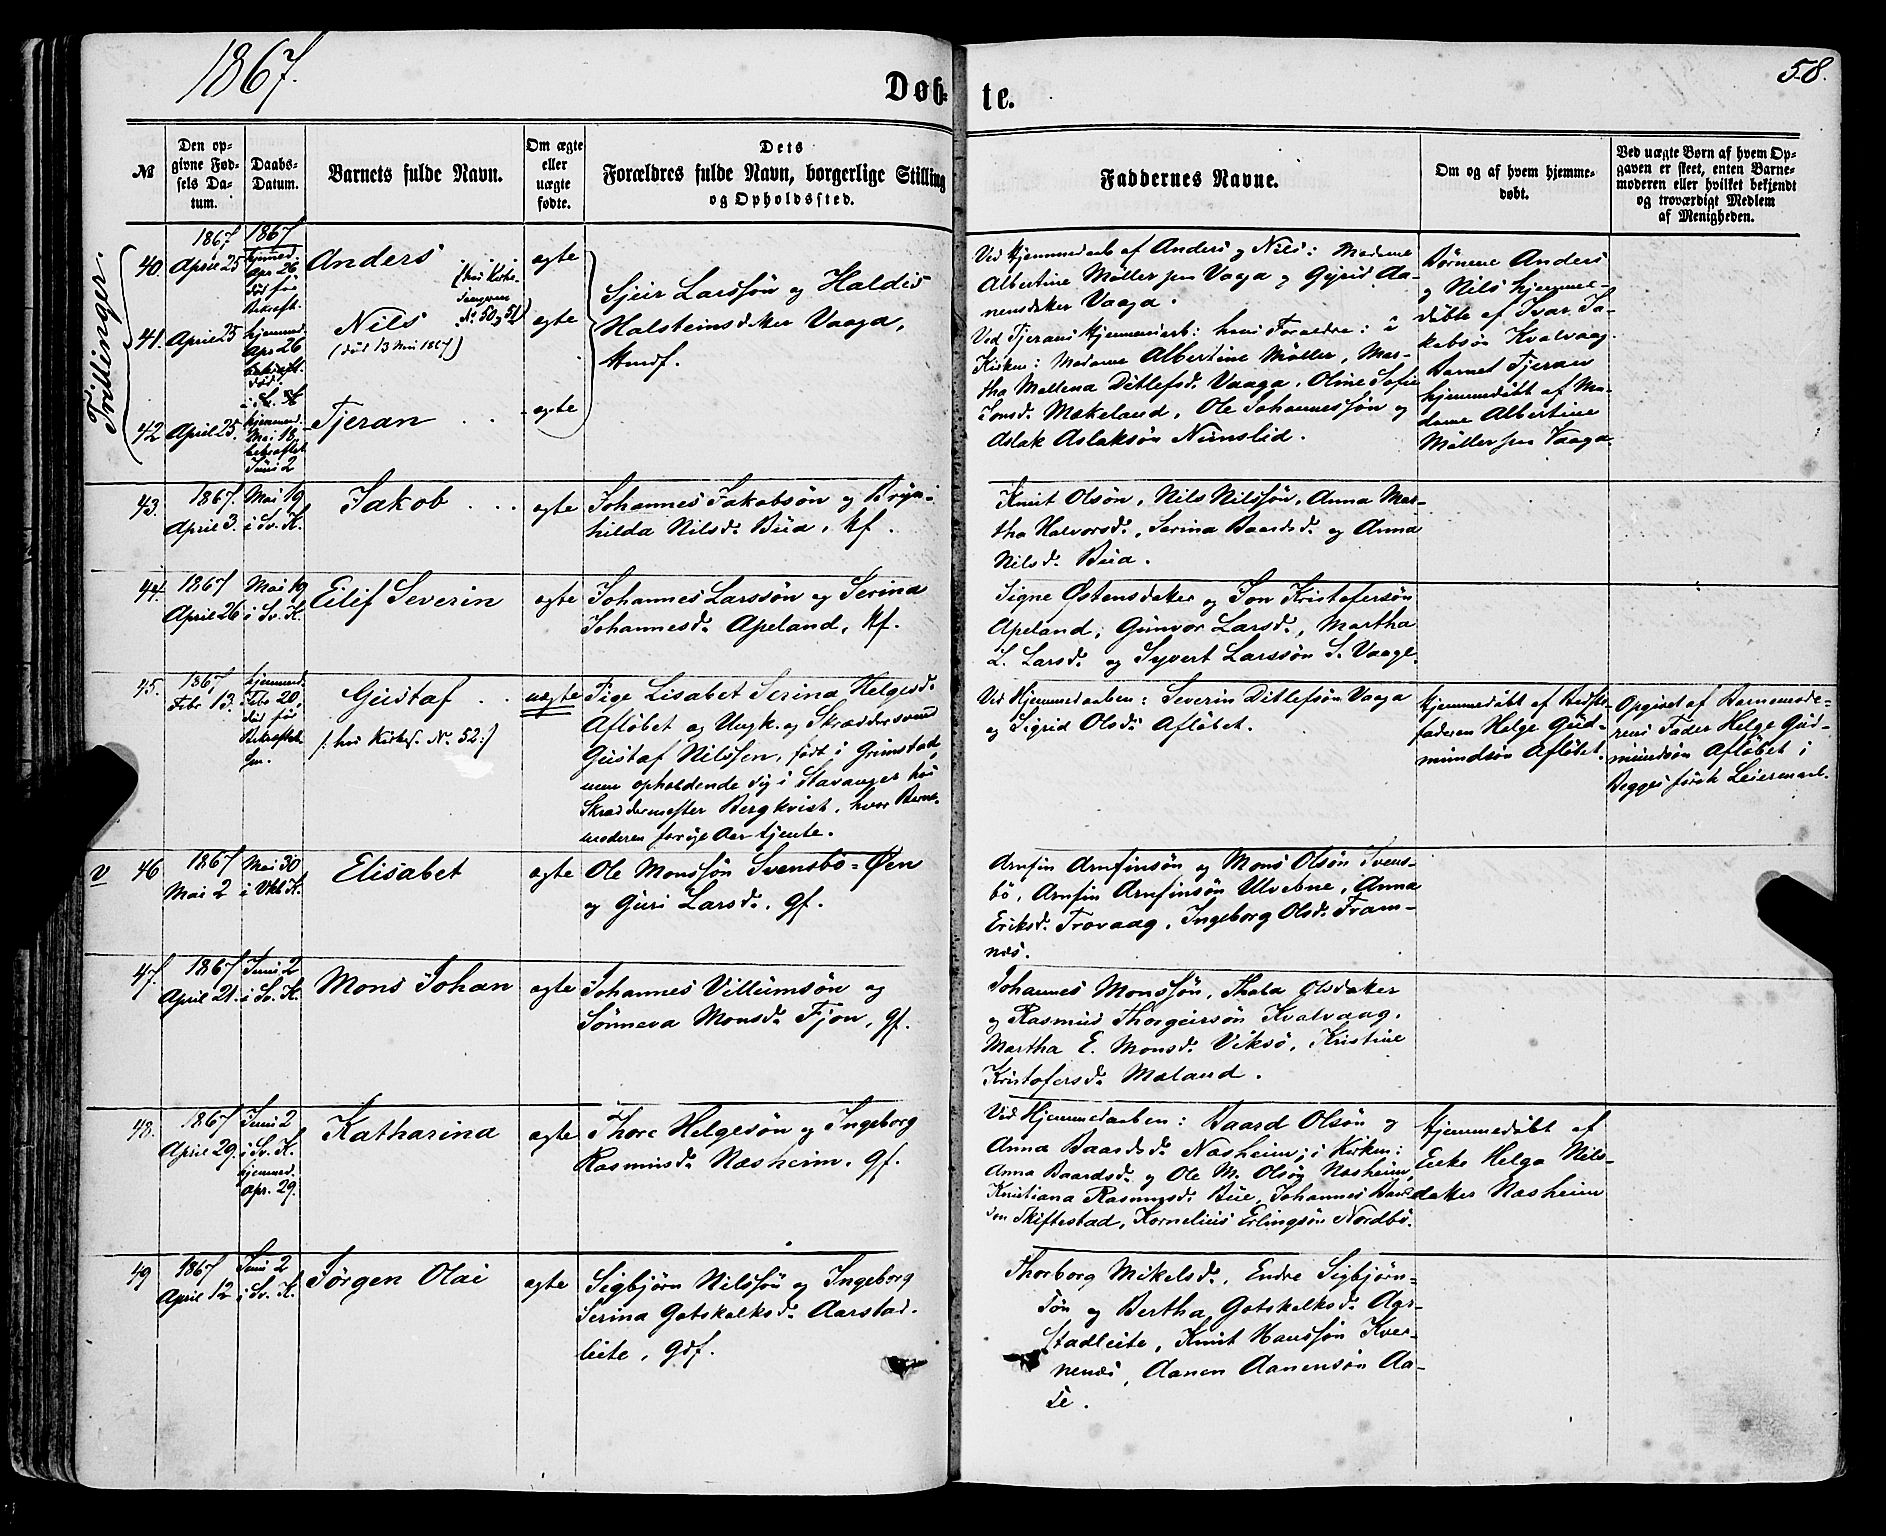 1867.
Døb-
te.
58.
№
Den op-
givne Fød-
sels Da-
tum.
Daabs-
Datum.
Barnets fulde Navn.
Om ægte
eller
uægte
fødte.
Dets
Forældres fulde Navn, borgerlige Stilling
og Opholdssted.
Faddernes Navne.
Om og af hvem hjemme-
døbt.
Ved uægte Børn af hvem Op-
gaven er skeet, enten Barne-
moderen eller hvilket bekjendt
og troværdigt Medlem
af Menigheden.
Trillinger.
40. 1867 April 25
1867
hjemmed.
Apr. 26
død før
Bekræft.
Anders
ægte
41. April 25
hjemmed.
Apr. 26
bekræft.
død.
Nils
(død 13 Mai 1867)
No. 50 og 51)
ægte
42 April 25.
i S. K.
hjemmed.
Mai 18,
bekræftet
Juni 2
Tjeran
ægte
Sjeir Larssön og Haldis
Halsteinsdater Vaaga,
Hmdf.
Ved Hjemmedaab af Anders og Nils: Madame
Albertine Møller paa Vaaga og Gyrid Aa-
nensdater Vaaga.
Ved Tjerans Hjemmedaab: hans Forældre: i
Kirken: Madame Albertine Møller, Mar-
tha Mallena Ditlefsd. Vaaga, Oline Sofie
Jonsd. Mækeland, Ole Johannessön og
Aslak Aslaksön Nimslid.
Börnene Anders
og Nils hjemme-
döbte af Ivar Ja-
kobsön Kvalvaag.
Barnet Tjeran
hjemmedöbt af Ma-
dame Albertine
Møller paa Vaaga.
43. 1867. April 3.
Mai 19
i Sv. K.
Jakob
ægte
Johannes Jakobsön og Bryn-
hilda Nilsd. Bua, Hf.
Knut Olsön, Nils Nilssön, Anna Mar-
tha Halvorsd., Serina Baardsd. og Anna
Nilsd. Bua.
44. 1867 April 26
Mai 19
i Sv. K.
Eilif Severin
ægte
Johannes Larssön og Serina
Johannesd. Apeland, Hf.
Signe Østensdater og Jon Kristofersön
Apeland, Gunvor Larsd., Martha
L. Larsd. og Syvert Larssön S. Vaage.
45. 1867 Febr. 13.
hjemmed.
Febr. 20,
död før
Bekræftel-
sen.
Gustaf
/: hos Kirkes. No. 52 :/
uægte
Pige Lisabet Serina Helgesd.
Aflöbet og Ungk. og Skræddersvend
Gustaf Nilssen, født i Grimstad,
men opholdende sig i Stavanger hos
Skræddermester Bergkvist, hvor Barne-
moderen forrige Aar tjente.
Ved Hjemmedaaben: Severin Ditlefsön Vaaga
og Sigrid Olsd. Aflöbet.
Hjemmedöbt af Beste-
faderen Helge Gud-
mundsön Aflöbet.
Opgivet af Barnemode-
rens Fader Helge Gud-
mundsön Aflöbet i
Begges förste Leiermaal.
V 46 1867 Mai 2
Mai 30
i Vkd. K.
Elisabet
ægte
Ole Monssön Svensbö-Øen
og Guri Larsd., gf.
Arnfin Arnfinsön og Mons Olsön Svens-
bö, Arnfin Arnfinsön Ulvebne, Anna
Eriksd. Trovaag, Ingeborg Olsd. Fram-
næs.
47. 1867 April 21.
Juni 2
i Sv. K.
Mons Johan
ægte
Johannes Villumsön og
Sönneva Monsd. Fjon, gf.
Johannes Monssön, Thala Olsdater
og Rasmus Thorgeirsön Kvalvaag,
Martha E. Monsd. Viksö, Kristine
Kristofersd. Mæland.
48. 1867 April 29.
Juni 2
i Sv. K.
hjemmed.
Apr. 29.
Katharina
ægte
Thore Helgesön og Ingeborg
Rasmusd. Næsheim, gf.
Ved Hjemmedaaben: Baard Olsön og
Anna Baardsd. Næsheim; i Kirken:
Anna Baardsd. og Ole M. Olsön Næsheim,
Kristiana Rasmusd. Bue, Johannes
Skiftestad, Kornelius Erlingsön Nordbö.
Hjemmedöbt af
Enke Helga Nils-
dater Næsheim
49 1867 April 12
Juni 2
i Sv. K.
Jörgen Olai
ægte
Sigbjörn Nilssön og Ingeborg
Serina Gotskalksd. Aarstad-
leite, gdf.
Thorborg Mikelsd., Endre Sigbjörn-
sön og Bertha Gotskalksd. Aar-
stadleite, Knut Hanssön Kver-
nenæs, Aanen Aanensön Aa-
se.